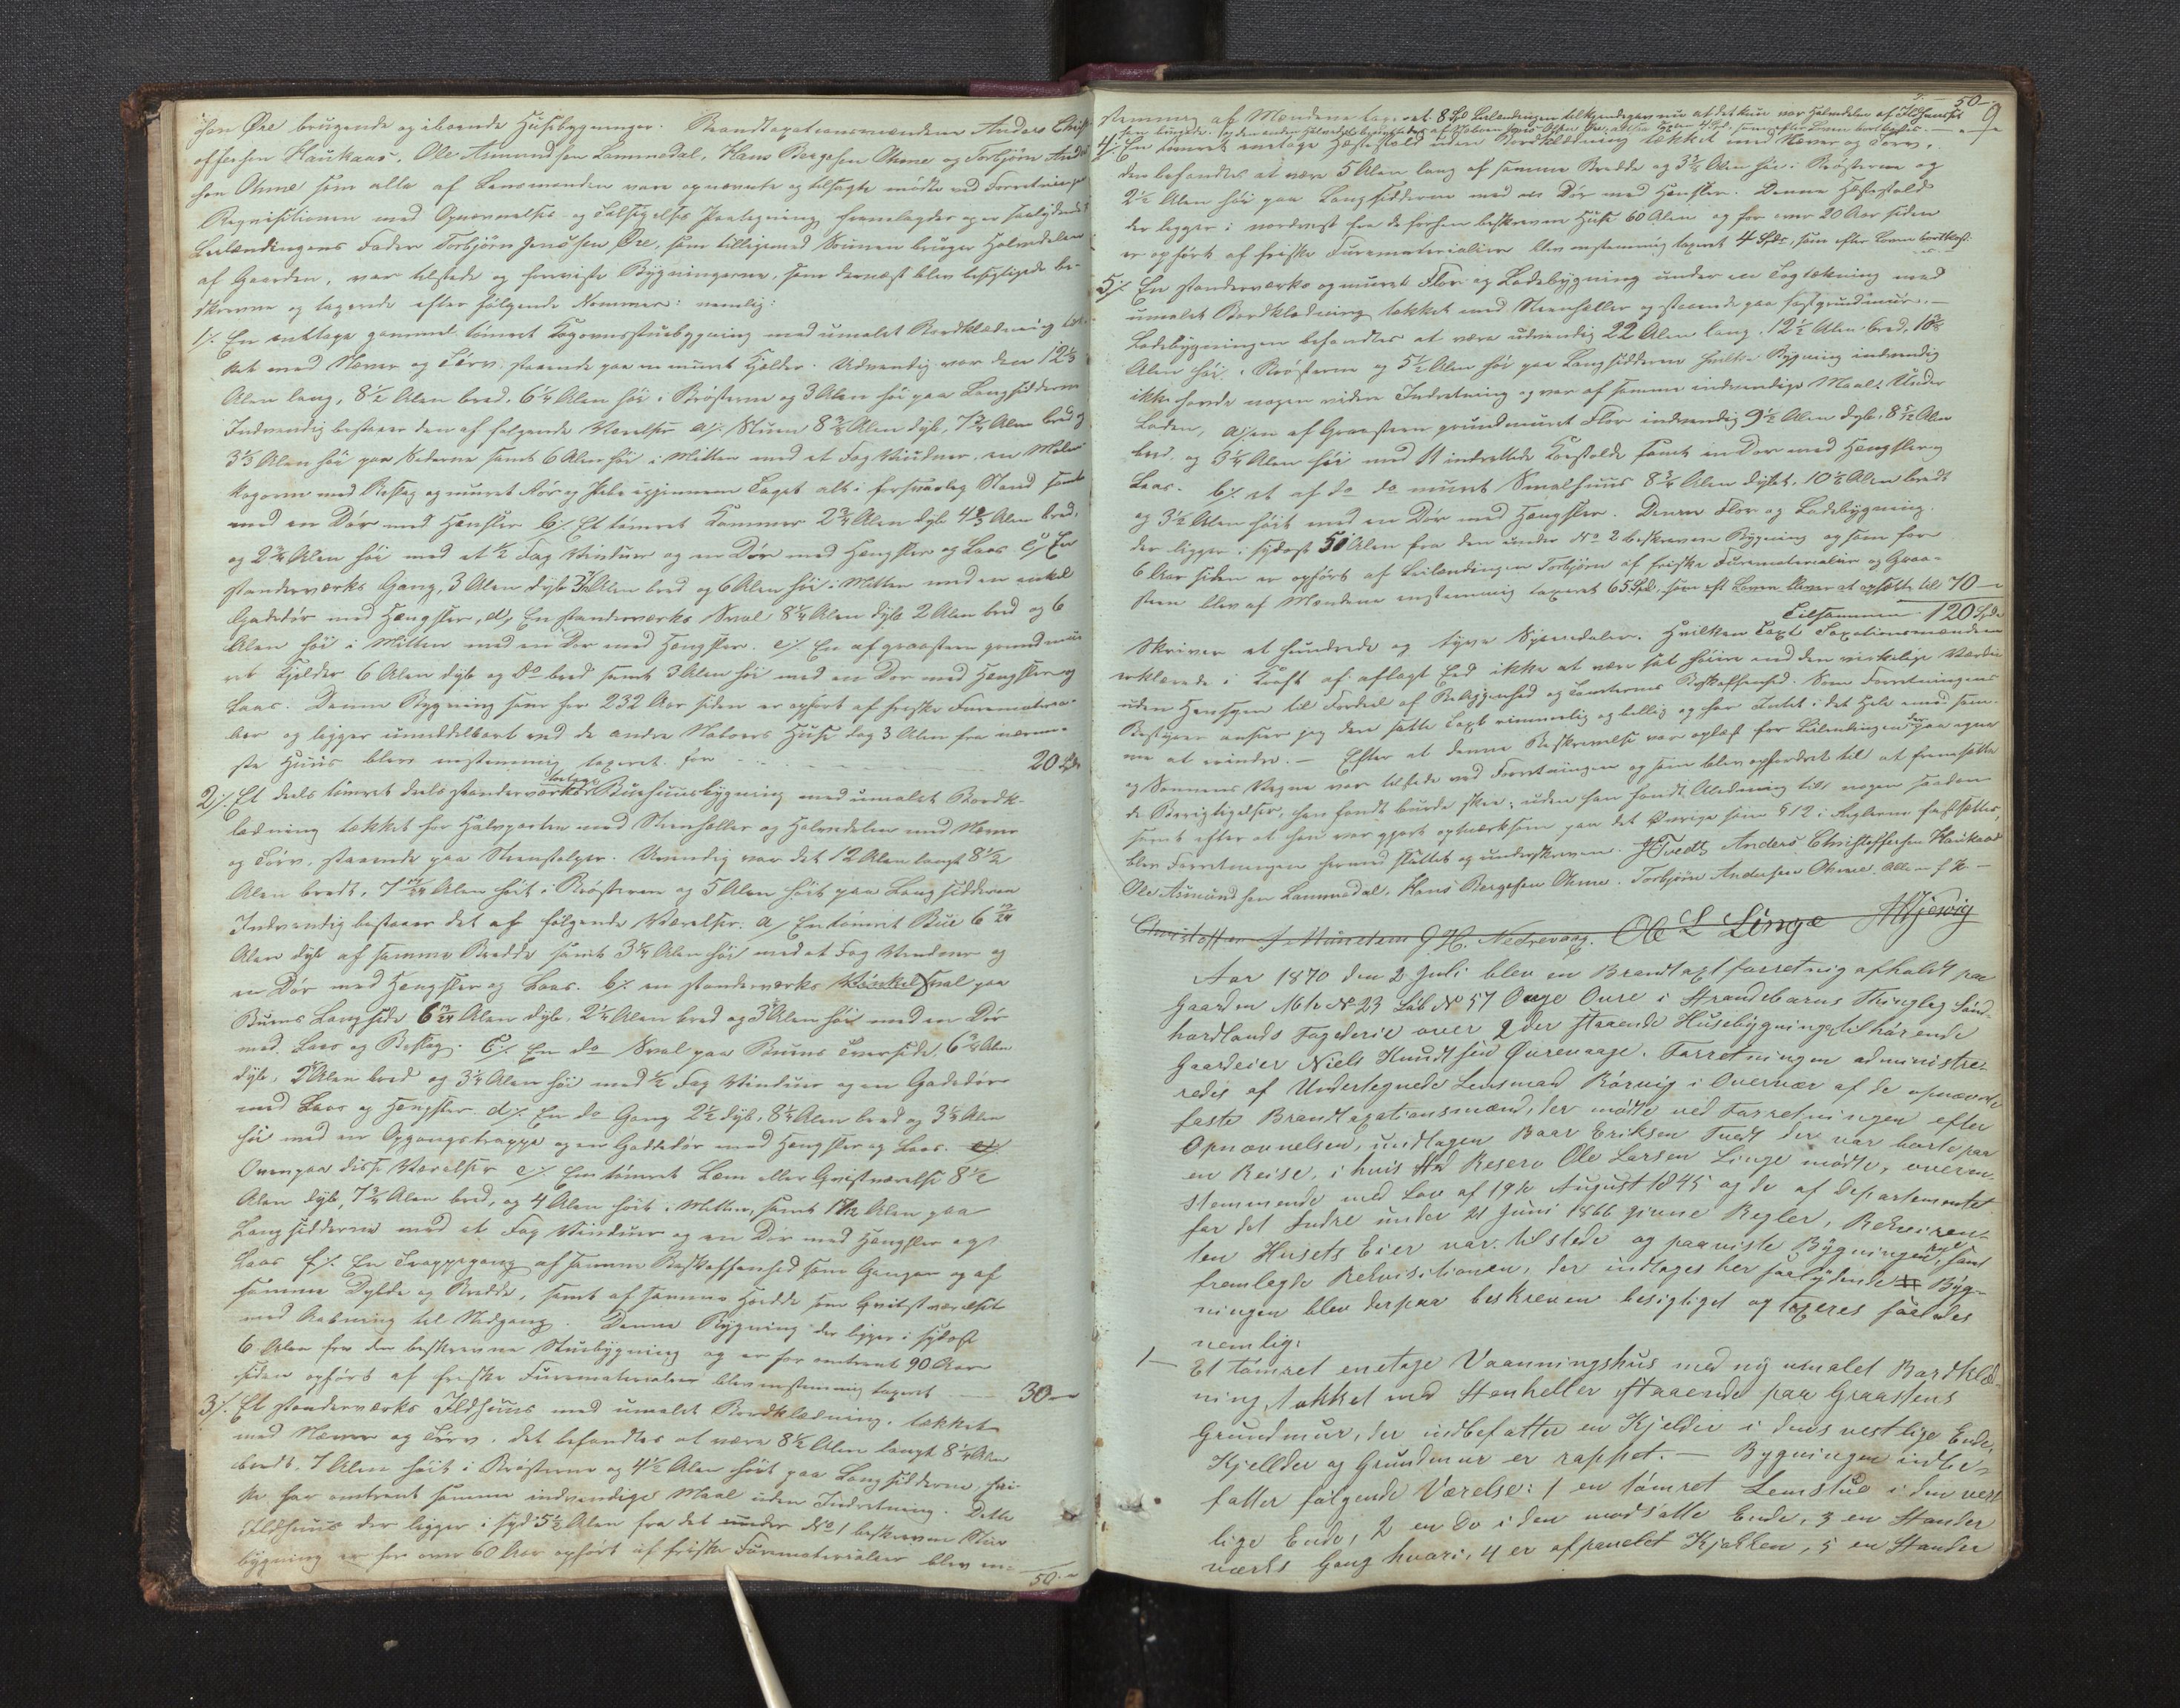 sen Øre brugende og iboende Husebygninger. Brandtaxationsmændene Anders Christ-
offersen Haukaas, Ole Asmundsen Lammedal, Hans Bergesen Ohme og Torbjørn Ander-
sen Ohme som alle af Lensmanden vare opnævnte og tilsagte mødte ved Forretningen
Requisitionen med Opnævnelses- og Tilsigelses Paategning fremlagdes og er saalydende
Leilændingens Fader Torbjørn Jensen Øre, som tilligemed Sønnen bruger Halvedelen
af Gaarden, var tilstede og foreviste Bygningerne, som dernæst blev besigtigede be-
skrevne og taxerede efter følgende Nommere: nemlig:
1/. En enetages gammel tømret Kogovnsstuebygning med umalet Bordklædning tæk-
ket med Næver og Törv staaende paa en muret Kjelder. Udvendig var den 12 1/3
Alen lang, 8 1/2 Alen bred, 6 1/4 Alen høi i Røsterne og 3 Alen høi paa Langsidderne
Indvendig bestaaer den af følgende Værelser a/. Stuen 8 3/8 Alen dyb, 7 3/4 Alen bred og
3 1/3 Alen høi paa Siderne samt 6 Alen høi i Mitten med et Fag Vinduer, en
Kogovn med Beslag og muret Rør og Pibe igjennem Taget alt i forsvarlig Stand samt
med en Dør med Hængsler b/. Et tømret Kammer 2 3/4 Alen dyb 4 Alen bred,
og 2 3/4 Alen høi med et 1/2 Fag Vinduer og en Dør med Hængsler og Laas c/ En
standerværks Gang, 3 Alen dyb Alen bred og 6 Alen høi i Mitten med en enkel
Gadedør med Hængsler, d/. En standerværks Sval 8 1/4 Alen dyb 2 Alen bred og 6
Alen høi i Mitten med en Dør med Hængsler. e/. En af graasteen grundmu-
ret Kjelder 6 Alen dyb og do bred samt 3 Alen høi med en Dør med Hængsler og
Laas. Denne Bygning som for 232 Aar siden er opført af friske Furemateria-
lier og ligger umiddelbart ved de andre Naboers Huse dog 3 Alen fra nærme-
ste Huus blev enstemmig taxeret for 20 Spd
2/. Et deels tømret deels standerværks toetages Buehuusbygning med umalet Bordk-
lædning tækket for Halvparten med Steenheller og Halvedelen med Næver
og Törv, staaende paa Steenstolper. Udvendig var det 12 Alen langt 8 1/2
Alen bredt, 7 Alen høit i Røsterne og 5 Alen høit paa Langsidderne
Indvendig bestaaer det af følgende Værelser: a/ En tømret Bue 6
Alen dyb af samme Bredde samt 3 1/4 Alen høi med et Fag Vinduer og
en Dør med Hængsler og Laas. b/. en standerværks Sval paa
Buens Langside 6 Alen dyb, 2 1/4 Alen bred og 3 Alen høi med en Dør
med Laas og Beslag. C/. En do Sval paa Buens Tverside, 6 3/4 Alen
dyb, 2 Alen bred og 3 1/4 Alen høi med 1/2 Fag Vinduer og en Gadedør
med Laas og Hængsler d/. En do Gang 2 1/2 dyb, 8 1/4 Alen bred og 3 1/4 Alen
høi med en Opgangstrappe og en Gaddedør med Hængsler og Laas.
Ovenpaa disse Værelser e/. Een tømret Læm eller Qvistværelse 8 1/2
Alen dyb, 7 3/4 Alen bred, og 4 Alen høit i Mitten, samt 1 1/2 Alen paa
Langsidderne med et Fag Vinduer og en Dør med Hængsler og
Laas f/. En Trappegang af samme Beskaffenhed som Gangen og af
samme Dybde og Bredde, samt af samme Høidde som Qvistværelset
med Aabning til Nedgang. Denne Bygning der ligger i sydost
6 Alen fra den beskrevne Stuebygning og er for omtrent 90 Aar
siden opført af friske Furematerialier blev enstemmig taxeret 30 —
3/. Et standerværks Ildhuus med umalet Bordklædning, tækket
med Næver og Törv. det befandtes at være 8 1/2 Alen langt 8 1/4 Alen
bredt, 7 Alen høit i Røsterne og 4 1/2 Alen høit paa Langsidderne, hvil-
ke har omtrent samme indvendiges Maal uden Indretning. Dette
Ildhuus der ligger i syd 5 1/2 Alen fra det under No 1 beskrevne Stue-
bygning er for over 60 Aar opført af friske Furematerialier blev en-
50 —
50 —
9
stemmig af Mændene taxeret 8 Spd Leilændingen tilkjendegav nu at det kun var Halvdelen af Ildhuuset
4/. En tømret enetages Hestestald uden Bordklædning tækket med Næver og Torv,
den befandtes at være 5 Alen lang af samme Bredde og 3 1/2 Alen høi i Røsterne og
2 1/2 Alen høi paa Langsidderne med en Dør med Hængsler. Denne Hestestald
der ligger i nordvest fra de forhen beskrevne Huse 60 Alen og for over 20 Aar siden
er opført af friske Furematerialier blev enstemmig taxeret 4 Spd, som efter Loven bortkast:
5/. En standerværks og muret Flor- og Ladebygning under en Tagtækning med
umalet Bordklædning tækket med Steenheller og staaende paa fast grundmuur. —
Ladebygningen befandtes at være udvendig 22 Alen lang, 12 1/2 Alen bred, 10
Alen høi i Røsterne og 5 1/2 Alen høi paa Langsidderne hvilken Bygning indvendig
ikke havde nogen videre Indretning og var af samme indvendige Maal. Under
Laden, a/ en af Graasteen grundmuret Flor indvendig 9 1/2 Alen dyb, 8 Alen
bred, og 3 1/4 Alen høi med 11 indrettede Koestalde samt en Dør med Hængsler og
Laas. b/. et af do do muret Smalhuus 8 3/4 Alen dybt, 10 1/2 Alen bredt
og 3 1/2 Alen høit med en Dør med Hængsler. Denne Flor og Ladebygning
der ligger i sydost 50 Alen fra den under No 2 beskrevne Bygning og som for
6 Aar siden er opført af Leilændingen Torbjørn af friske Furematerialier og Graa-
steen blev af Mændene enstemmig taxeret 65 Spd, som eft Loven bliver at opsætte til 70 —
Tilsammen 120 Spd
Skriver et hundrede og tyve Speciedaler. Hvilken Taxt Taxationsmændene
erklærede i Kraft af aflagt Eed ikke at være sat høiere end den virkelige Værdie
uden Hensyn til Fordeel af Beliggenhed og Tomternes Beskaffenhed. Som Forretningens
Bestyrer anseer jeg den satte Taxt rimmelig og billig og har Intet i det Hele imod sam-
me at erindre. — Efter at denne Beskrivelse var oplæst for Leilændingen der paa egne
og Sønnens Vegne var tilstede ved Forretningen og som blev opfordret til at fremsætte
de Berigtigelser, han fandt burde skee, uden han fandt Anledning til nogen saadan
samt efter at han var gjort opmærksom paa det Øvrige som § 12 i Reglerne fastsætter,
blev Forretningen hermed sluttet og underskreven. JTvedt Anders Christoffersen Haukaas
Ole Asmundsen Lammedal. Hans Bergesen Ohme. Torbjørn Andersen Ohme. Alle m f P. —
Christoffer J. Mundheim G. H. Nedrevaag. Ole L Linge
Aar 1870 den 2 Juli blev en Brandtaxtforretnig afholdt paa
Gaarden Mtr No 23 Løb No 57 Oure i Strandebarms Thinglag Sönd-
hordlands Fogderie over 2 der staaende Husebygninger tilhørende
Gaardeier Niels Knudtsen Øurevaage. Forretningen administre-
redes af Undertegnede Lensmand Rörvig i Overvær af de opnævnte
faste Brandtaxationsmænd, der mødte ved Forretningen efter
Opnævnelsen, undtagen Baar Eriksen Tvedt der var borte paa
en Reise, i hvis Sted Reserv Ole Larsen Linge mødte, overen-
stemmende med Lov af 19de August 1845 og de af Departementet
for det Indre under 21 Juni 1866 givne Regler, Rekviren-
ten Husets Eier var tilstede og paaviste Bygningen, samt
fremlagde Rekvisitionen, der indtages her saalydende Byg-
ningen blev derpaa beskreven besigtiget og taxeres saaledes
nemlig:
1— Et tømret enetage Vaanningshus med ny umalet Bordklæd-
ning, takket med Stenheller staaende paa Graastens
Grundmur, der indbefatter en Kjelder i dens vestlige Ende,
Kjellder og Grundmur er rappet. — Bygningen indbe-
fatter følgende Værelse: 1 en tømret Lemstue i den vest
lige Ende, 2 en Do i den modsatte Ende, 3 en Stander
værks Gang hvori, 4 er afpanelet Kjøkken, 5 en Stander